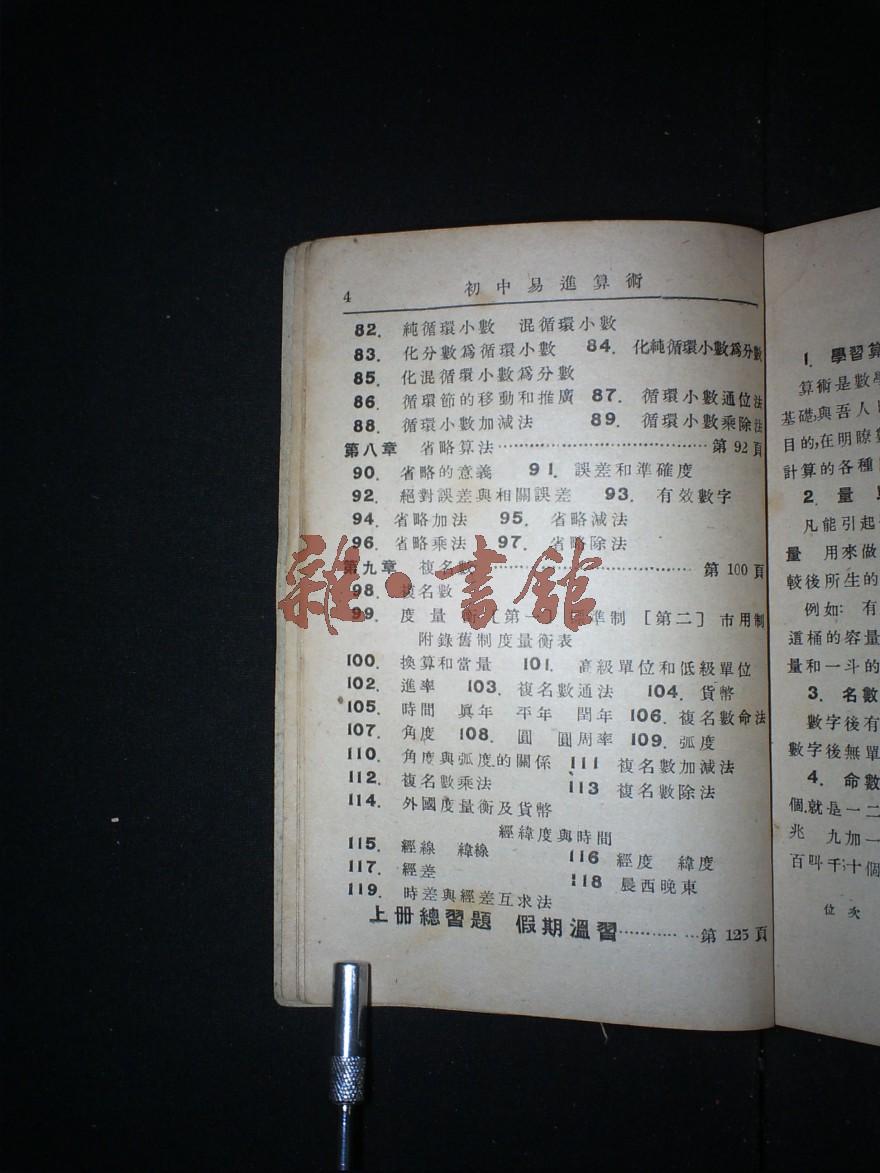 4 初中易進算術
82. 純循環小數 混循環小數
83. 化分數爲循環小數 84. 化純循環小數爲分數
85. 化混循環小數爲分數
86. 循環節的移動和推廣 87. 循環小數通位法
88. 循環小數加減法 89. 循環小數乘除法
第八章 省略算法……………………………第 92 頁
90. 省略的意義 91. 誤差和準確度
92. 絕對誤差與相關誤差 93. 有效數字
94. 省略加法 95. 省略減法
96. 省略乘法 97. 省略除法
第九章 複名數……………………………第 100 頁
98. 複名數
99. 度量衡〔第一〕標準制〔第二〕市用制
附錄舊制度量衡表
100. 換算和當量 101. 高級單位和低級單位
102. 進率 103. 複名數通法 104. 貨幣
105. 時間 眞年 平年 閏年 106. 複名數命法
107. 角度 108. 圓 圓周率 109. 弧度
110. 角度與弧度的關係 111 複名數加減法
112. 複名數乘法 113 複名數除法
114. 外國度量衡及貨幣
經緯度與時間
115. 經線 緯線 116 經度 緯度
117. 經差 118 晨西晚東
119. 時差與經差互求法
上册總習題 假期溫習……………第 125 頁
雜·書館
1. 學習算
算術是數學
基礎,與吾人
目的,在明瞭數
計算的各種
2. 量
凡能引起
量 用來做
較後所生的
例如: 有
道桶的容量
量和一斗的
3. 名數
數字後有
數字後無單
4. 命數
個,就是一二
兆 九加一
百叫千;十個
位 次